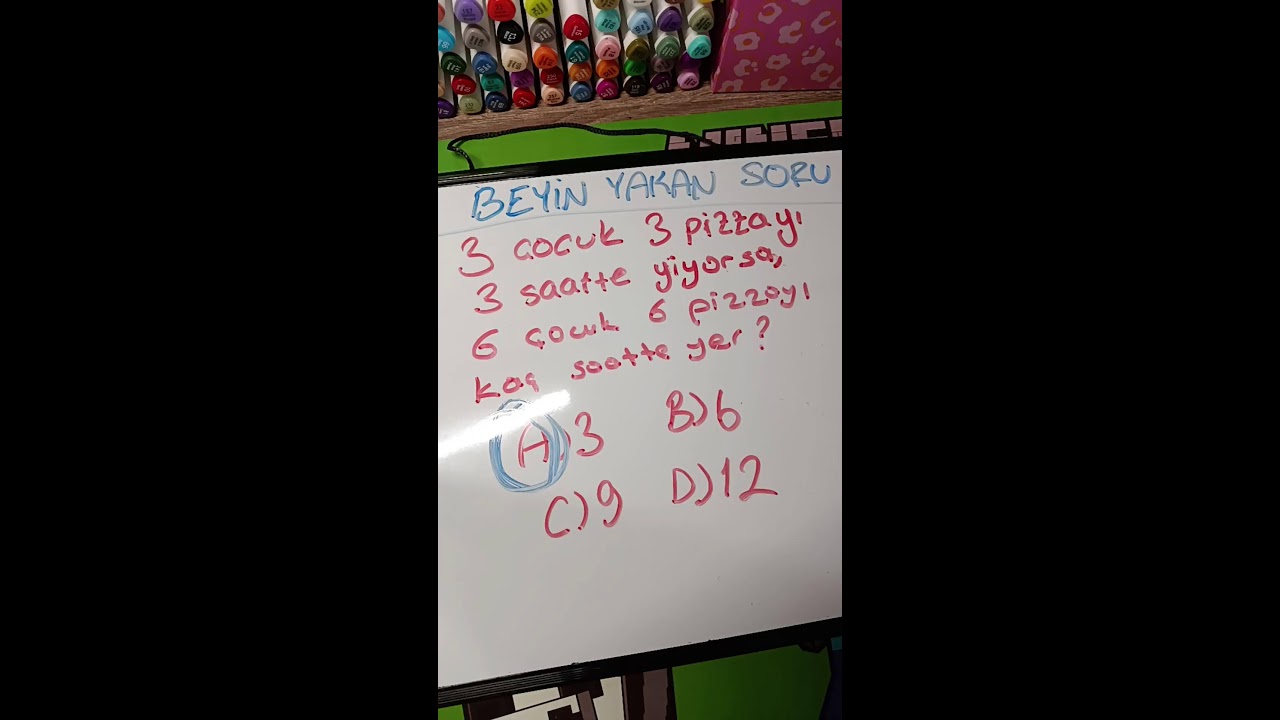 BEYİN YAKAN SORU
3 çocuk 3 pizzayı
3 saatte yiyorsa,
6 çocuk 6 pizzayı
kaç saatte yer?
A) 3 B) 6
C) 9 D) 12